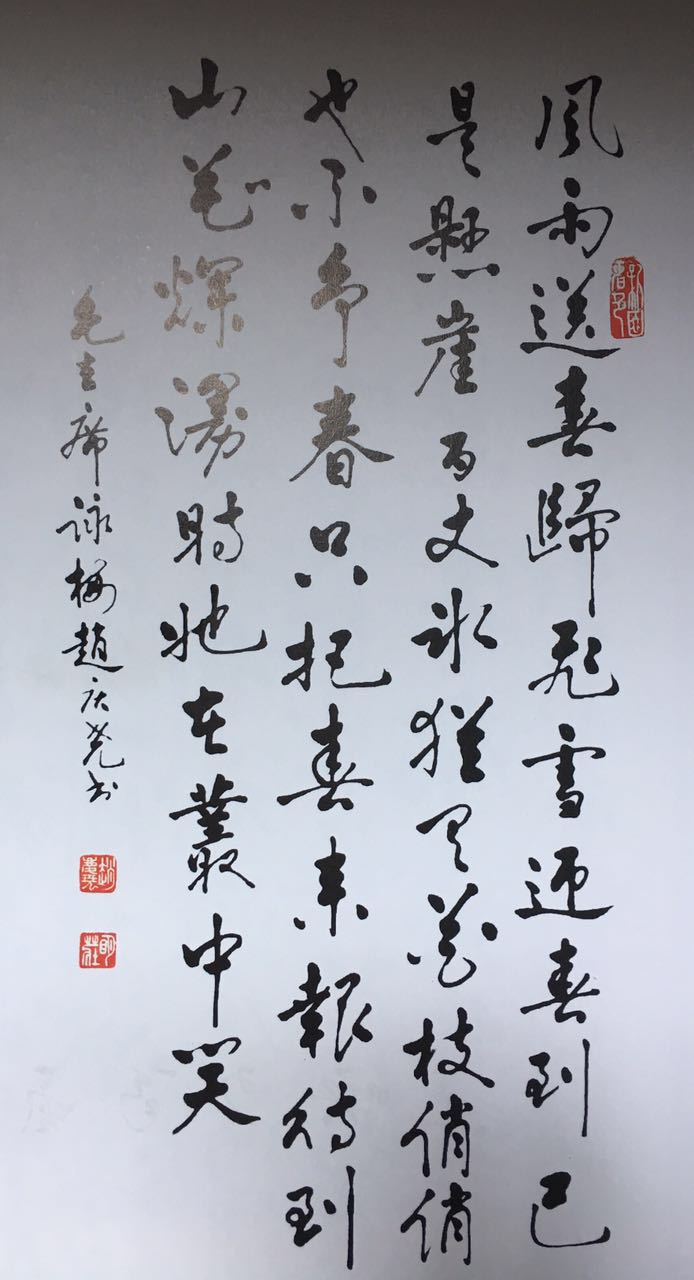 風雨送春歸飛雪迎春到已
是懸崖百丈冰猶有花枝俏俏
也不争春只把春来報待到
山花爛漫時她在叢中笑
毛主席詠梅趙庆尧书